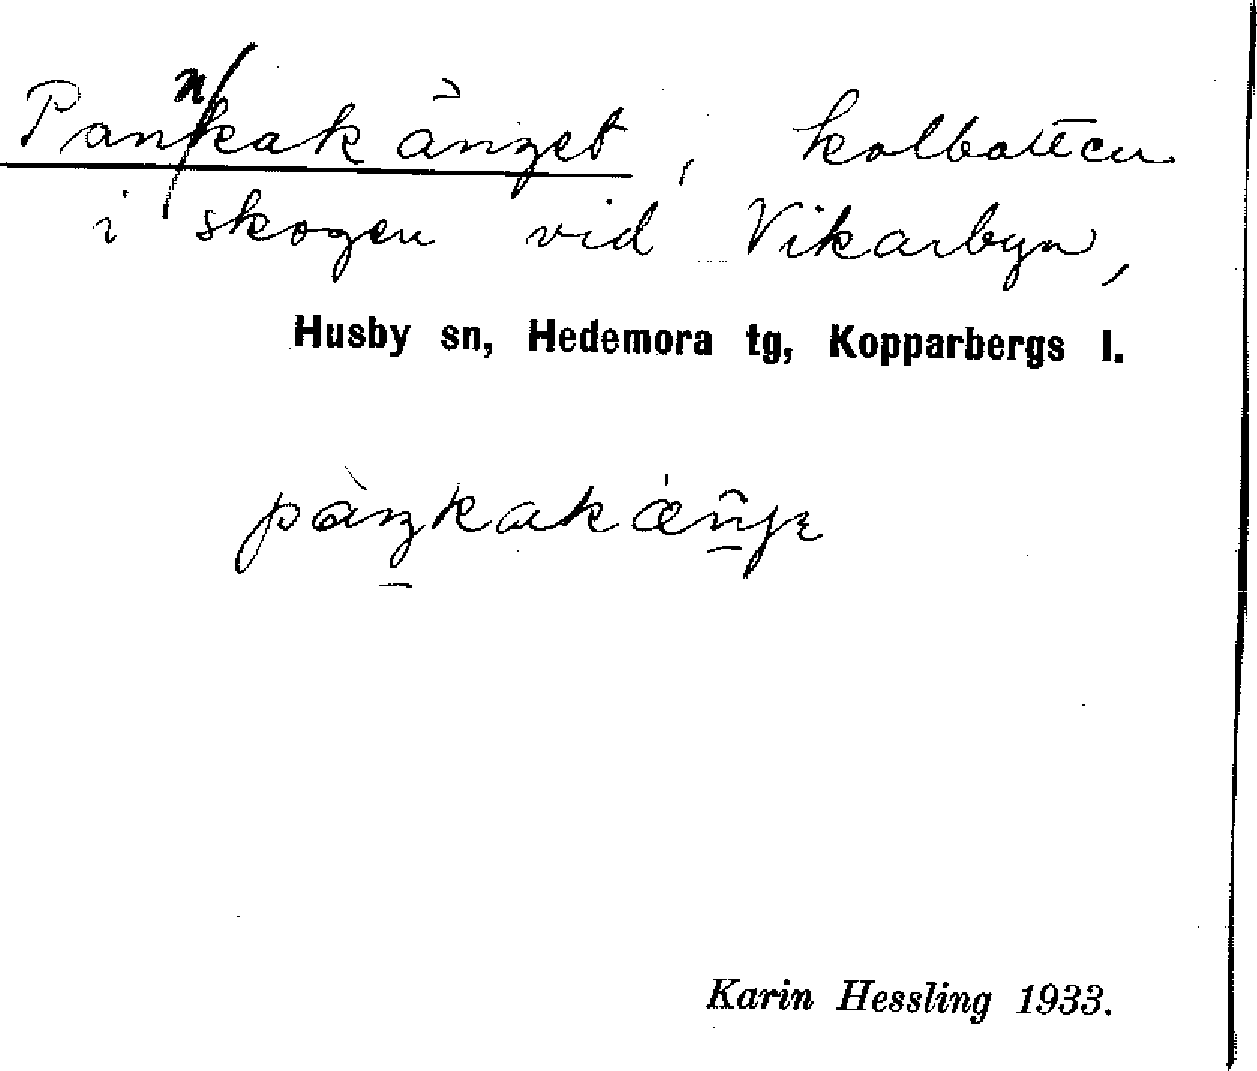 Pannkakänget, kolbotten
i skogen vid Vikarbyn,
Husby sn, Hedemora tg, Kopparbergs l.
pàŋkakæ̀ŋ̂jɛ
Karin Hessling 1933.